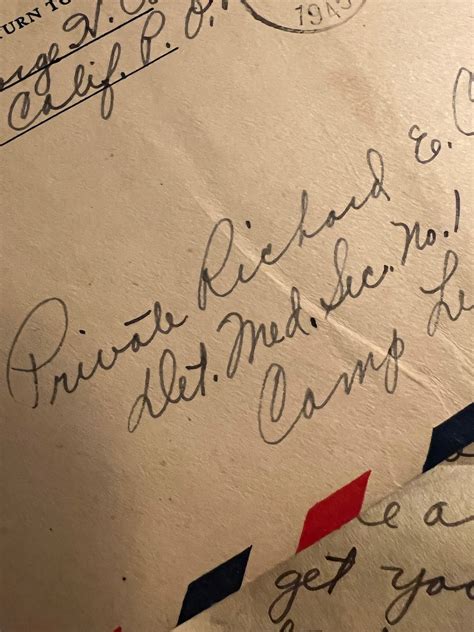 TURN TO
Calif. P. O.
194
Private Richard E.
Det. Med. Sec. No. 1
Camp Le
e a
get you